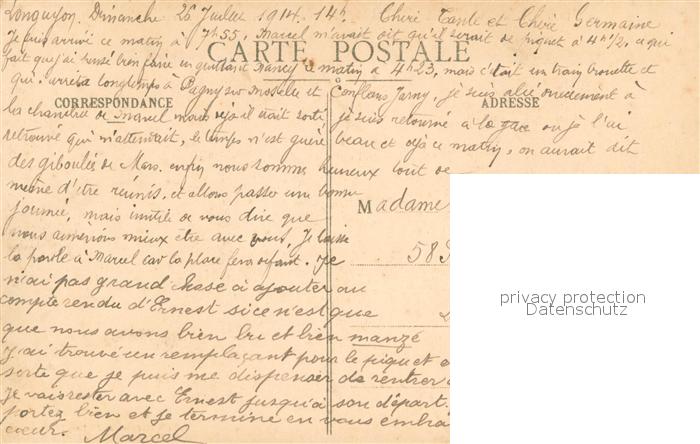 Longuyon. Dimanche 26 Juillet 1914. 14h. Chère Tante et Chère Germaine
Je suis arrivé ce matin à 7h55, Marcel m'avait dit qu'il serait de piquet à 4h 1/2, ce qui
CARTE POSTALE
fait que j'ai bien faire en quittant Nancy ce matin a 4h23, mais c'était un train brouette et
qui arrêta longtemps à Pagny sur Moselle et Conflans Jarny, je suis allé directement à
CORRESPONDANCE
ADRESSE
la chambre de Marcel mais déjà il était sorti je suis retourné à la gare où je l'ai
retrouvé qui m'attendait, le temps n'est guère beau et déjà ce matin, on aurait dit
des giboulées de Mars. enfin nous sommes heureux tout de
même d'être réunis, et allons passer une bonne
journée, mais inutile de vous dire que
Madame
nous aimerions mieux être avec vous. Je laisse
la parole à Marcel car la place fera défaut. Je
58
n'ai pas grand chose à ajouter au
compte rendu d'Ernest si ce n'est que
privacy protection
Datenschutz
que nous avons bien bu et bien mangé
J'ai trouvé un remplaçant pour le piquet
sorte que je puis me dispenser de rentrer
Je vais rester avec Ernest jusqu'à son départ.
portez bien et je termine en vous
cœur. Marcel